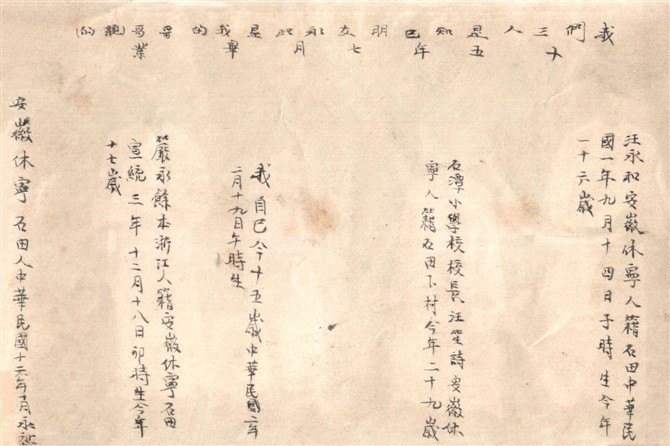 我們三人是知巳明友永和是我的哥哥親的
十五年七月畢業
汪永和安徽休寧人籍石田中華民
國一年九月十四日子時生今年
一十六歲
石潭小學校校長汪笙詩安徽休
寧人籍石田下村今年二十九歲
我自巳今十五歲中華民國二年
二月十九日午時生
嚴永餘本浙江人籍安徽休寧石田
宣統三年十二月十八日卯時生今年
十七歲
安徽休寧石田人中華民國十六年月永